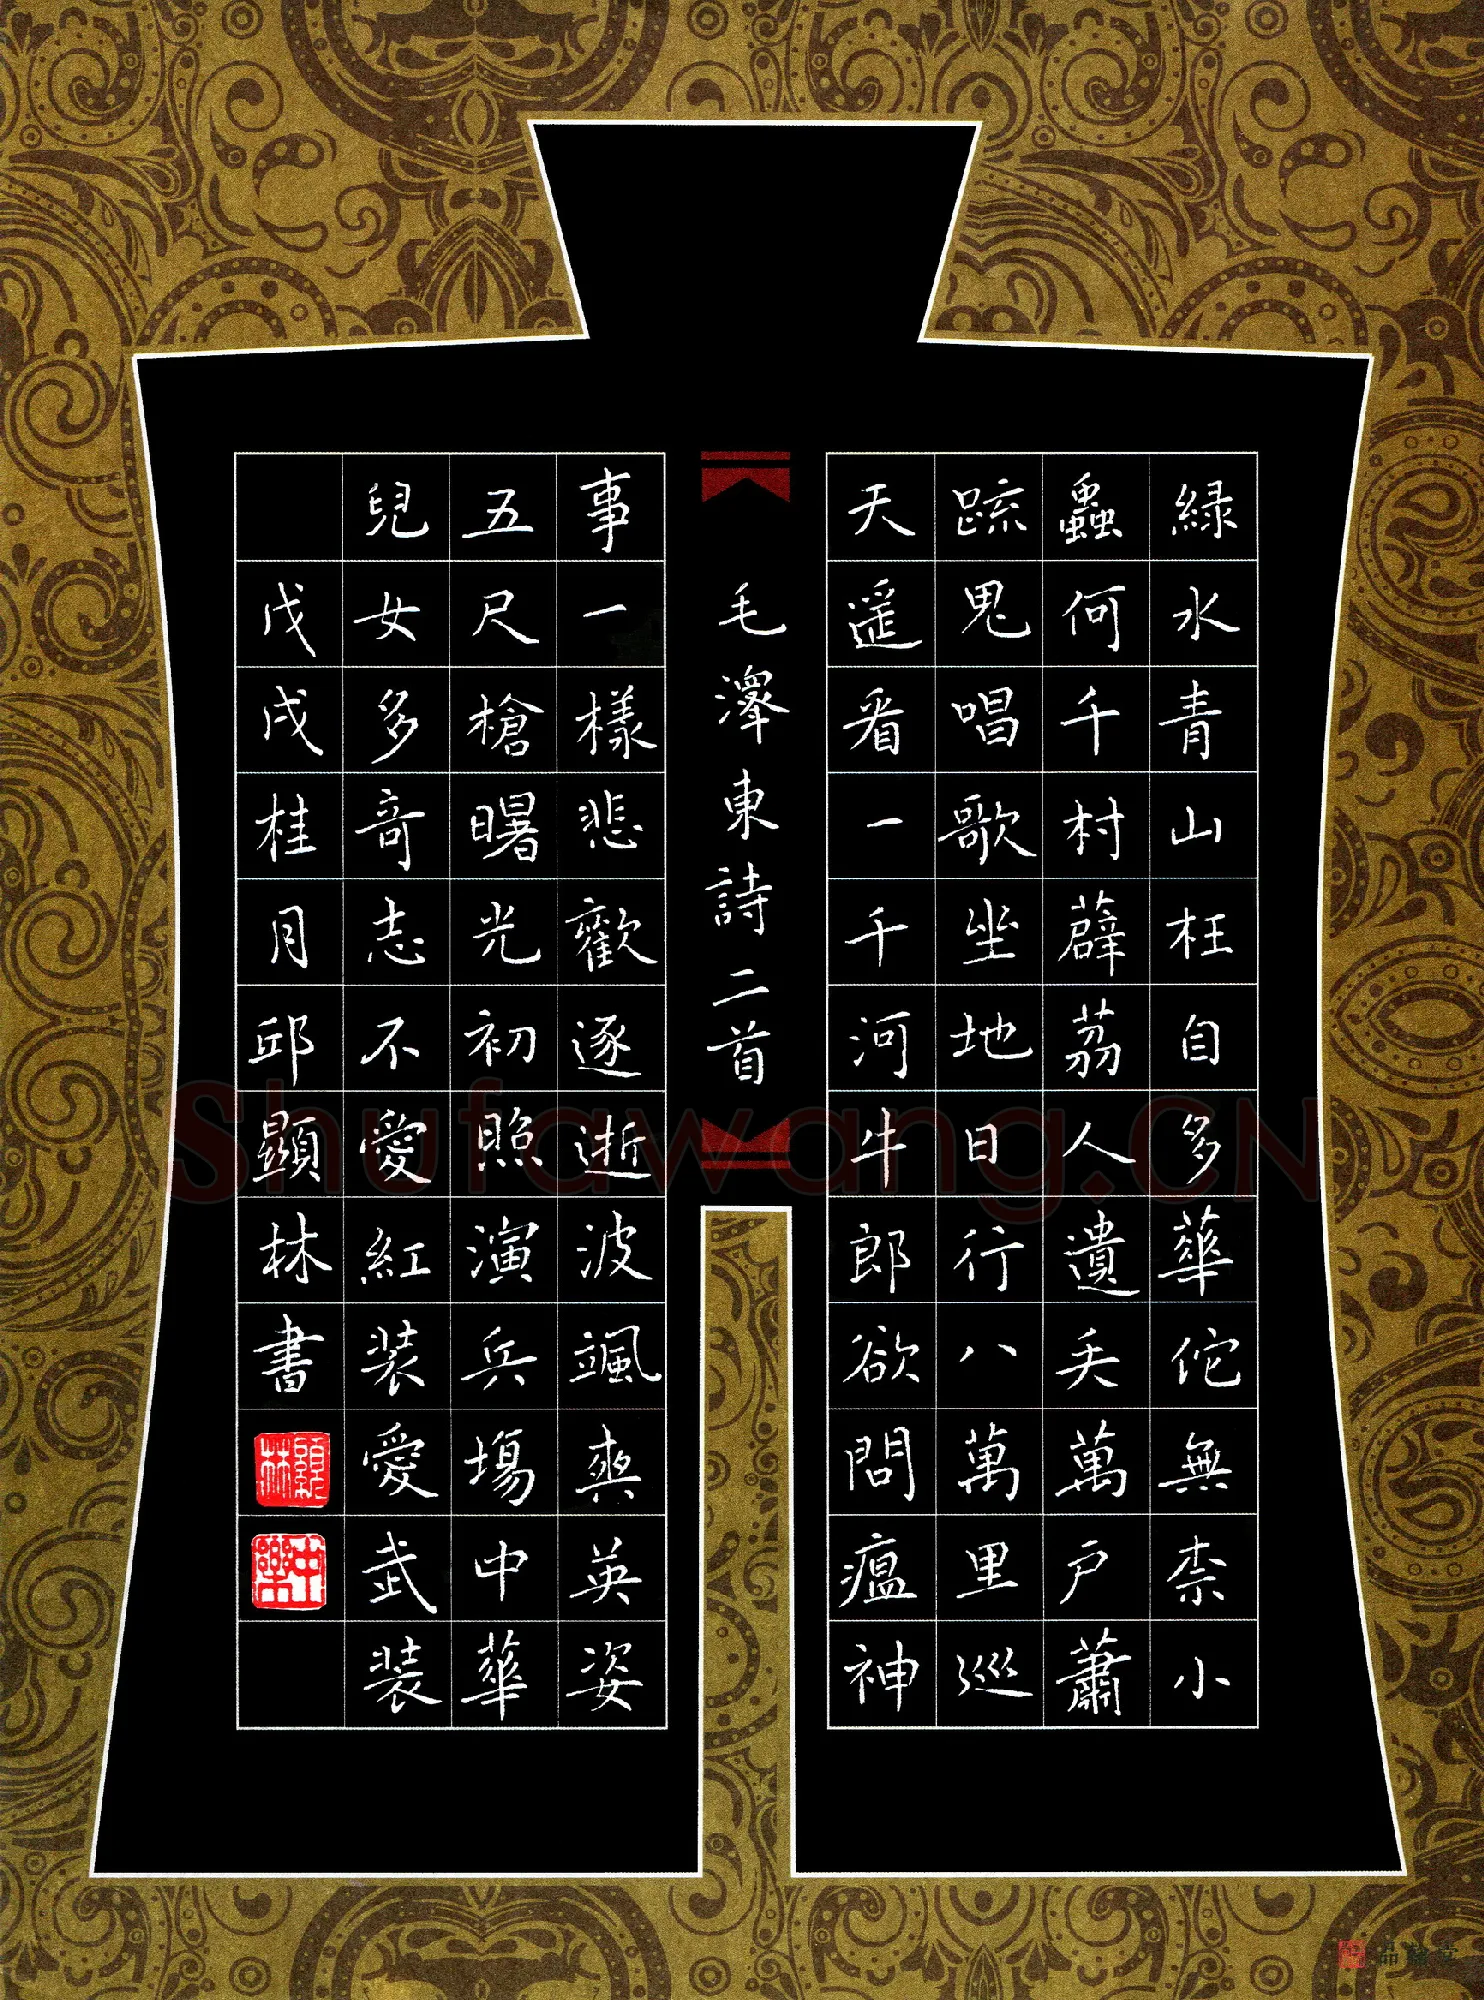 緑水青山枉自多華佗無柰小
蟲何千村薜荔人遺矢萬戶蕭
疏鬼唱歌坐地日行八萬里巡
天遥看一千河牛郎欲問瘟神
毛澤東詩二首
事一樣悲歡逐逝波颯爽英姿
五尺槍曙光初照演兵塲中華
兒女多奇志不愛紅装愛武装
戊戌桂月邱顯林書
顯林
Shufawang.CN